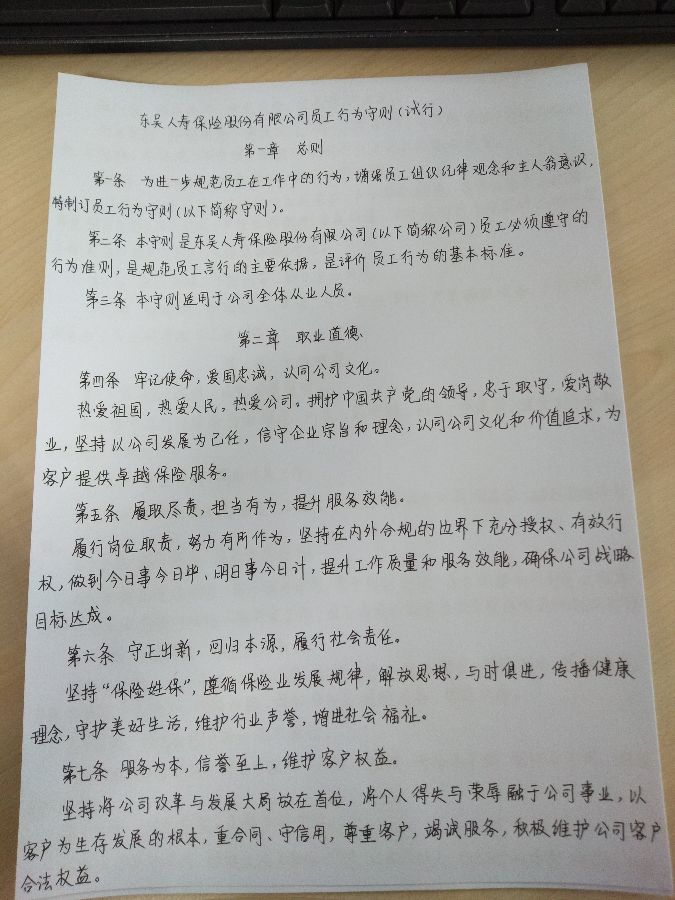 东吴人寿保险股份有限公司员工行为守则(试行)
第一章 总则
第一条 为进一步规范员工在工作中的行为,增强员工组织纪律观念和主人翁意识,
特制订员工行为守则(以下简称守则)。
第二条 本守则是东吴人寿保险股份有限公司(以下简称公司)员工必须遵守的
行为准则,是规范员工言行的主要依据,是评价员工行为的基本标准。
第三条 本守则适用于公司全体从业人员。
第二章 职业道德
第四条 牢记使命,爱国忠诚,认同公司文化。
热爱祖国,热爱人民,热爱公司。拥护中国共产党的领导,忠于取守,爱岗敬
业,坚持以公司发展为己任,信守企业宗旨和理念,认同公司文化和价值追求,为
客户提供卓越保险服务。
第五条 履取尽责,担当有为,提升服务效能。
履行岗位取责,努力有所作为,坚持在内外合规的边界下充分授权、有效行
权,做到今日事今日毕、明日事今日计,提升工作质量和服务效能,确保公司战略
目标达成。
第六条 守正出新,回归本源,履行社会责任。
坚持“保险姓保”,遵循保险业发展规律,解放思想,与时俱进,传播健康
理念,守护美好生活,维护行业声誉,增进社会福祉。
第七条 服务为本,信誉至上,维护客户权益。
坚持将公司改革与发展大局放在首位,将个人得失与荣辱融于公司事业,以
客户为生存发展的根本,重合同、守信用,尊重客户,竭诚服务,积极维护公司客户
合法权益。